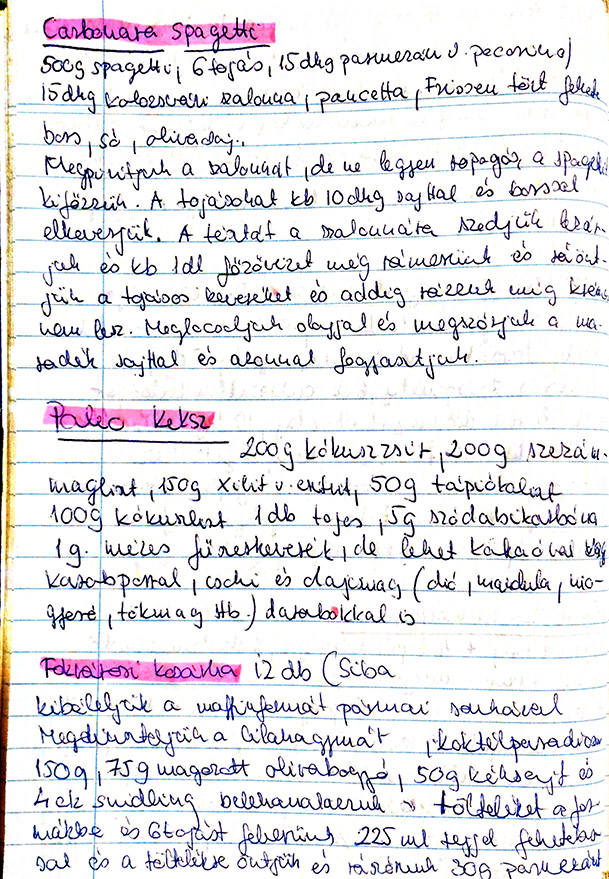 Carbonara spagetti
500g spagetti, 6 tojás, 15 dkg parmezán v. pecorino
15 dkg kolozsvári szalonna, pancetta, Frissen tört fehér
bors, só, olivaolaj.
Megpirítjuk a szalonnát, de ne legyen ropogós a spagettit
kifőzzük. A tojásokat kb 10 dkg sajttal és borssal
elkeverjük. A tésztát a szalonnára szedjük lezár-
juk és kb 1dl főzővizet még rámerünk és ráönt-
jük a tojásos keveréket és addig rázzuk míg krémes
nem lesz. Meglocsoljuk olajjal és megszórjuk a ma-
radék sajttal és azonnal fogyasztjuk.
Paleo keksz
200g kókuszzsír, 200g szezám-
magliszt, 150g xilit v. eritrit, 50g tápiókaliszt
100g kókuszliszt 1db tojás, 5g szódabikarbóna
1g. mézes fűszerkeverék, de lehet kakaóval vagy
karobporral, csoki és olajosmag (dió, mandula, mo-
gyoró, tökmag stb.) darabokkal is
kosárka 12 db (Siba
kibéleljük a muffinformát pármai sonkával
Megdinszteljük a lilahagymát, koktélparadicsom
150g, 75g magozott olivabogyó, 50g kéksajt és
4 ek snidling belekanalazzuk tölteléket a for-
mákba és 6 tojást felverünk 225 ml tejjel fehérbors-
sal és a töltelékre öntjük és rászórunk 30g parmezánt